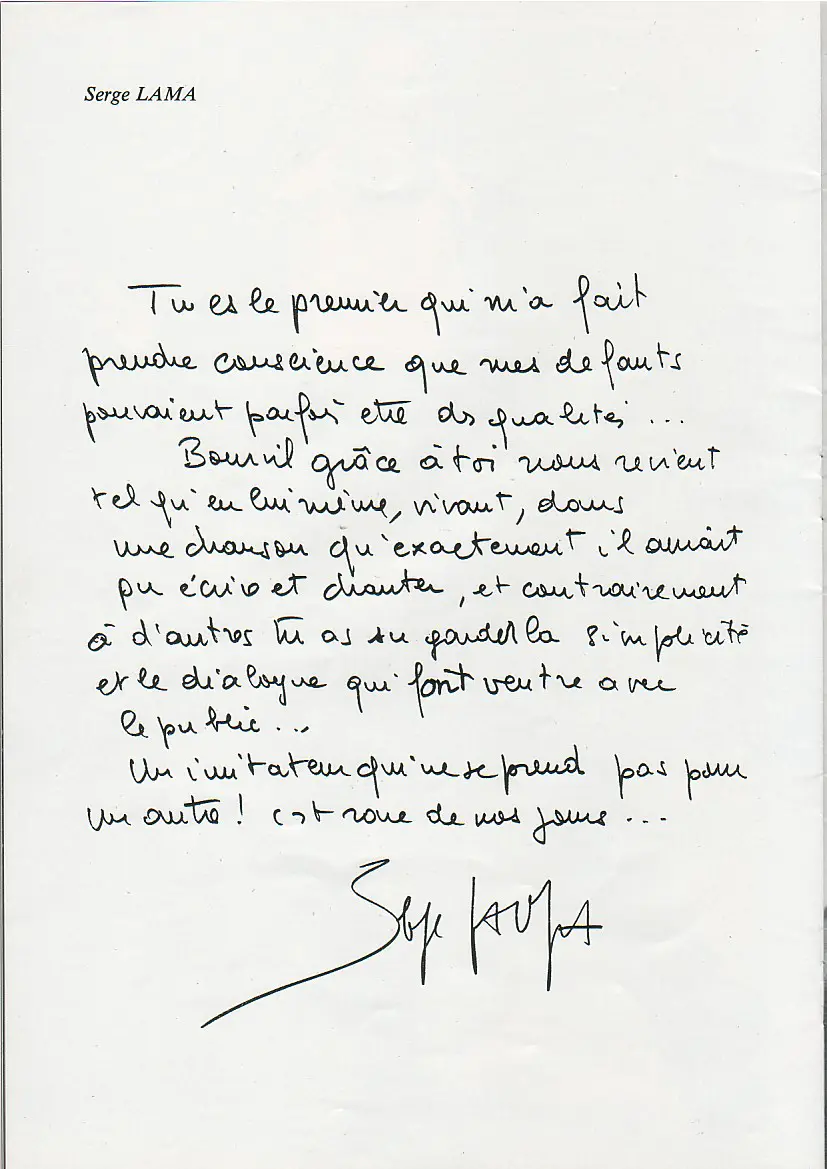 Serge LAMA
Tu es le premier qui m'a fait
prendre conscience que mes defauts
pouvaient parfois etre des qualités ...
Bourvil grâce à toi nous revient
tel qu'en lui même, vivant, dans
une chanson qu'exactement il aurait
pu écrire et chanter, et contrairement
à d'autres tu as su garder la simplicité
et le dialogue qui font ventre avec
le public...
Un imitateur qui ne se prend pas pour
un autre ! c'est rare de nos jours ...
Serge LAMA